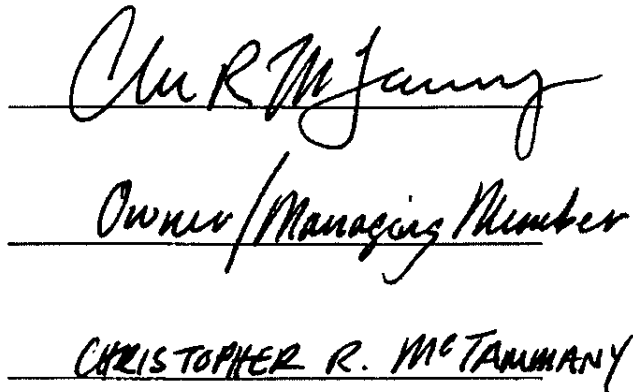 Chr R McTammany
Owner/Managing Member
CHRISTOPHER R. McTAMMANY